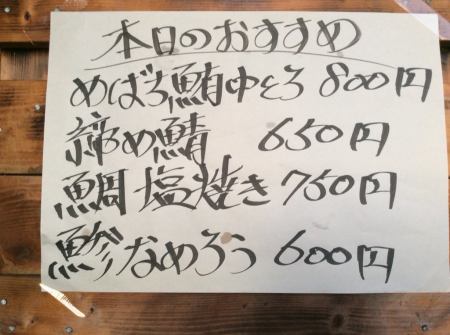 本日のおすすめ
めばち鮪中とろ 800円
締め鯖 650円
鯛塩焼き 750円
鯵なめろう 600円